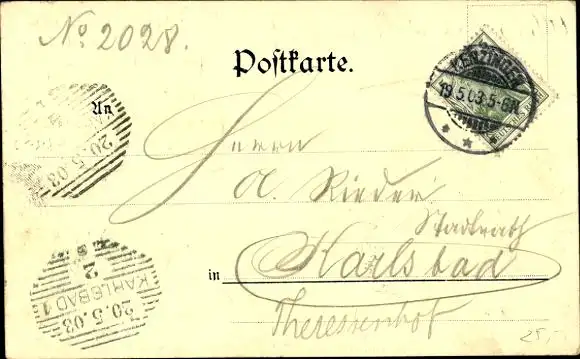 No. 2028.
Postkarte.
KENZINGEN
19.5.03.5-6N.
An
20.5.03
Herrn
A. Rieder
Stadtrath
in Karlsbad
Theresienhof
KARLSBAD 1
20.5.03
2
25,-